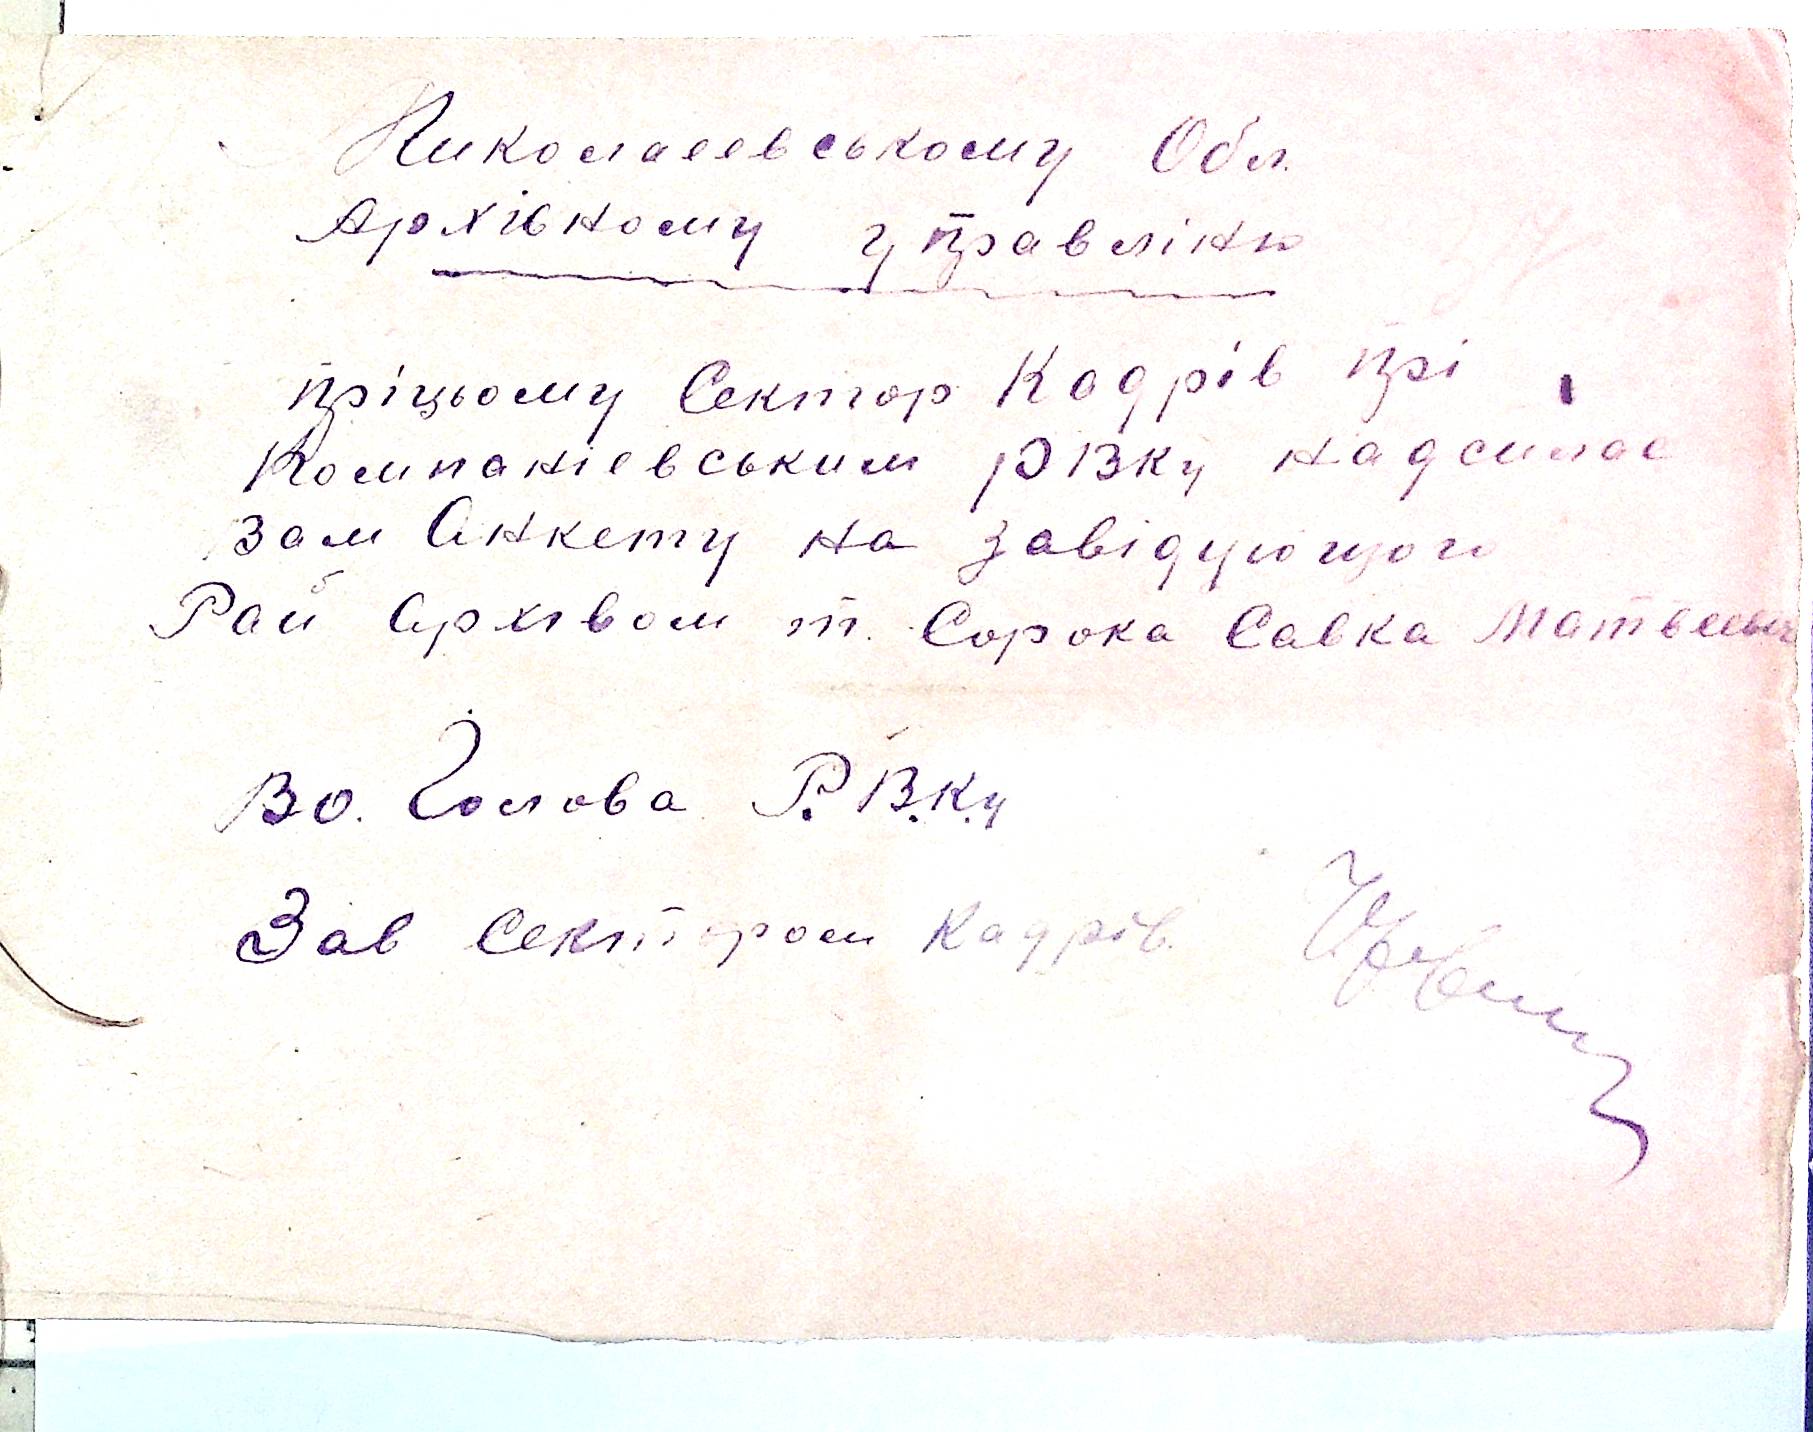 Николаеевському Обл.
Архівному управліню
пріцьому Сектор Кадрів прі
Компаніевським РВКу надсилає
Вам Анкету на завідующого
Рай Архівом т. Сорока Савка
Во. Голова Р.В.К.у
Зав Сектором Кадрів.